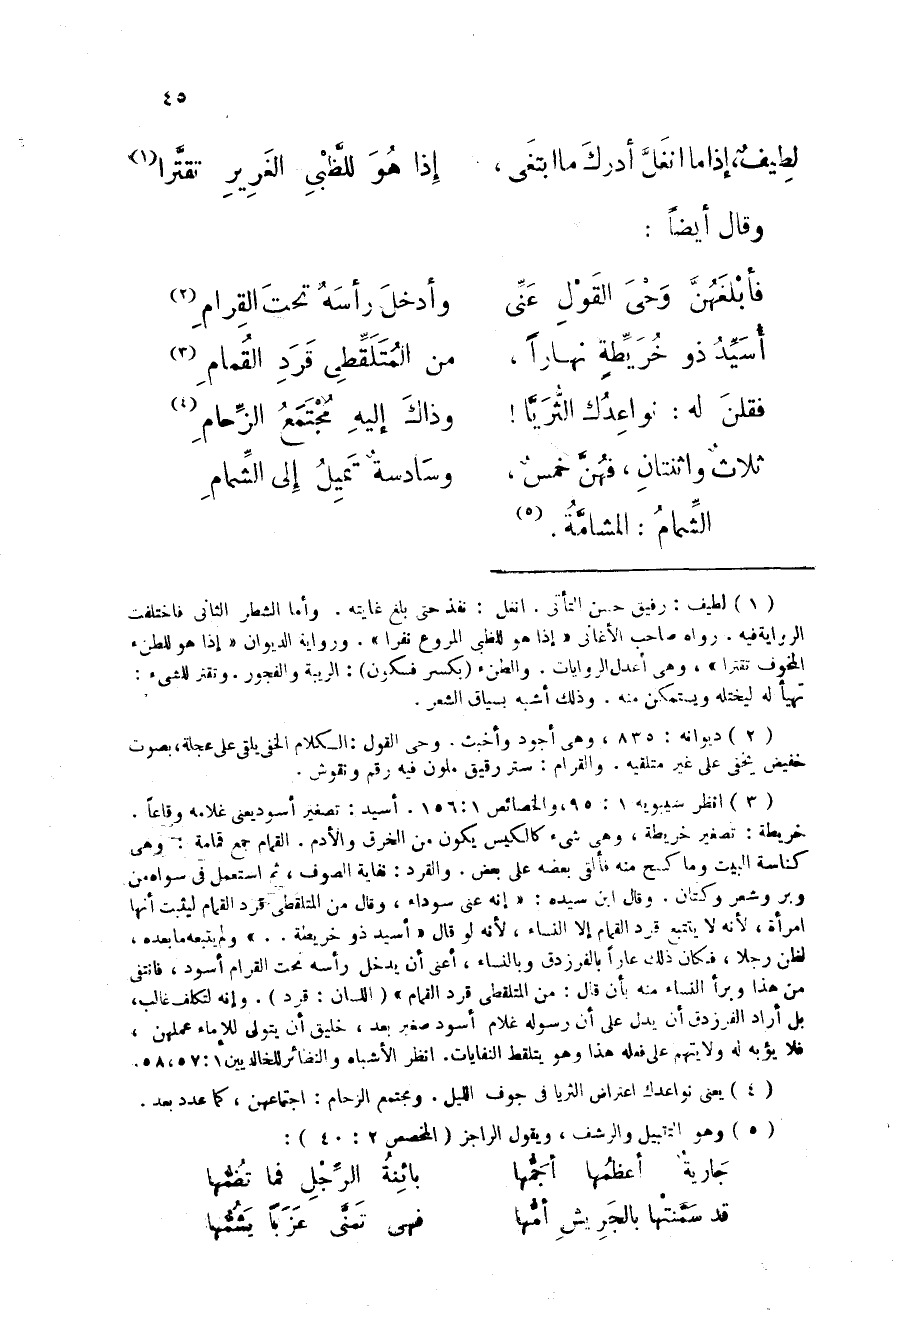 ٤٥
لطِيفٌ، إذا ما انغَلَّ أدركَ ما ابتغَى ، إِذا هُوَ للظَّبْيِ الغَرِيرِ تقتَّرا (١)
وقال أيضاً :
فأَبْلَغَهُنَّ وَحْىَ القَوْلِ عَنِّى وأدخلَ رأسَهُ تحتَ القِرامِ (٢)
أُسَيِّدُ ذو خُرَيِّطةٍ نهاراً ، من المُتَلَقِّطِى قَرَدِ القُمامِ (٣)
فقلنَ له : نواعِدُك الثُّرَيَّا ! وذاكَ إليهِ مُجْتَمَعُ الزِّحامِ (٤)
ثلاثٌ واثنتانِ ، فهُنَّ خمسٌ ، وسَادسةٌ تَمِيلُ إلى الشِّمامِ
الشِّمامُ : المشامَّةُ . (٥)
( ١ ) لطيف : رفيق حسن التأتى . انغل : نفذ حتى بلغ غايته . وأما الشطر الثانى فاختلفت
الرواية فيه . رواه صاحب الأغانى « إذا هو للظبى المروع نفرا » . ورواية الديوان « إذا هو للطنء
المخوف تقترا » ، وهى أعدل الروايات . والطنء (بكسر فسكون) : الريبة والفجور . وتقتر للشىء :
تهيأ له ليختله ويستمكن منه . وذلك أشبه بسياق الشعر .
( ٢ ) ديوانه : ٨٣٥ ، وهى أجود وأخبث . وحى القول : الكلام الخفى يلقى على عجلة، بصوت
خفيض يخفى على غير متلقيه . والقرام : ستر رقيق ملون فيه رقم ونقوش .
( ٣ ) انظر سيبويه ١ : ٩٥، والخصائص ١ : ١٥٦ . أسيد : تصغير أسود يعنى غلامه وقاعاً .
خريطة : تصغير خريطة ، وهى شىء كالكيس يكون من الخرق والأدم . القمام جمع قمامة : وهى
كناسة البيت وما كسح منه فألقى بعضه على بعض . والقرد : نفاية الصوف ، ثم استعمل فى سواه من
وبر وشعر وكتان . وقال ابن سيده : « إنه عنى سوداء ، وقال من المتلقطى قرد القمام ليثبت أنها
امرأة ، لأنه لا يتتبع قرد القمام إلا النساء ، لأنه لو قال « أسيد ذو خريطة . . » ولم يتبعه ما بعده ،
لظن رجلا ، فكان ذلك عاراً بالفرزدق وبالنساء ، أعنى أن يدخل رأسه تحت القرام أسود ، فانتفى
من هذا وبرأ النساء منه بأن قال : من المتلقطى قرد القمام » ( اللسان : قرد ) . وإنه لتكلف غالب،
بل أراد الفرزدق أن يدل على أن رسوله غلام أسود صغير بعد ، خليق أن يتولى للإماء عملهن ،
فلا يؤبه له ولا يتهم على فعله هذا وهو يتلقط النفايات. انظر الأشباه والنضائر للخالديين ١ : ٥٧ ، ٥٨ .
( ٤ ) يعنى نواعدك اعتراض الثريا فى جوف الليل . ومجتمع الزحام : اجتماعهن ، كما عدد بعد .
( ٥ ) وهو التقبيل والرشف ، ويقول الراجز ( المخصص ٢ : ٤٠ ) :
جَاريةٌ أعظمُها أجَمُّها بائِنةُ الرِّجْلِ فما تضُمُّها
قد سَمَّنتْها بالجَرِيشِ أمُّها فهى تَمَنَّى عَزَباً يَشُمُّها